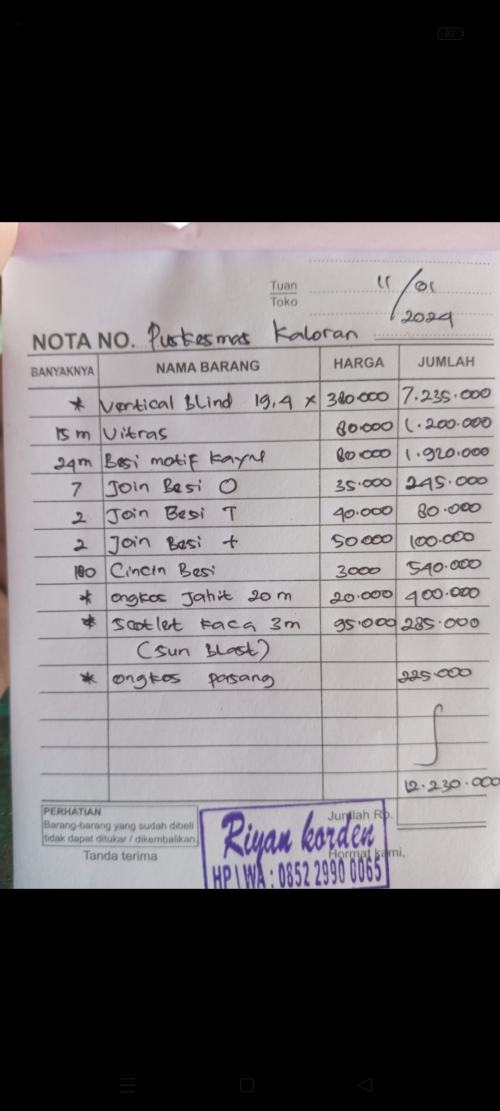 87
Tuan
Toko
11/01
2024
NOTA NO. Puskesmas Kaloran
BANYAKNYA NAMA BARANG HARGA JUMLAH
* Vertical Blind 19,4 x 380.000 7.235.000
15 m Vitras 80.000 1.200.000
24m Besi motif Kayu 80.000 1.920.000
7 Join Besi O 35.000 245.000
2 Join Besi T 40.000 80.000
2 Join Besi + 50.000 100.000
180 Cincin Besi 3000 540.000
* ongkos Jahit 20 m 20.000 400.000
* Scotlet Kaca 3m 95.000 285.000
(Sun Blast)
* ongkos pasang 225.000
12.230.000
PERHATIAN
Barang-barang yang sudah dibeli
tidak dapat ditukar / dikembalikan
Jumlah Rp.
Tanda terima
Hormat kami,
Riyan korden
HP | WA : 0852 2990 0065